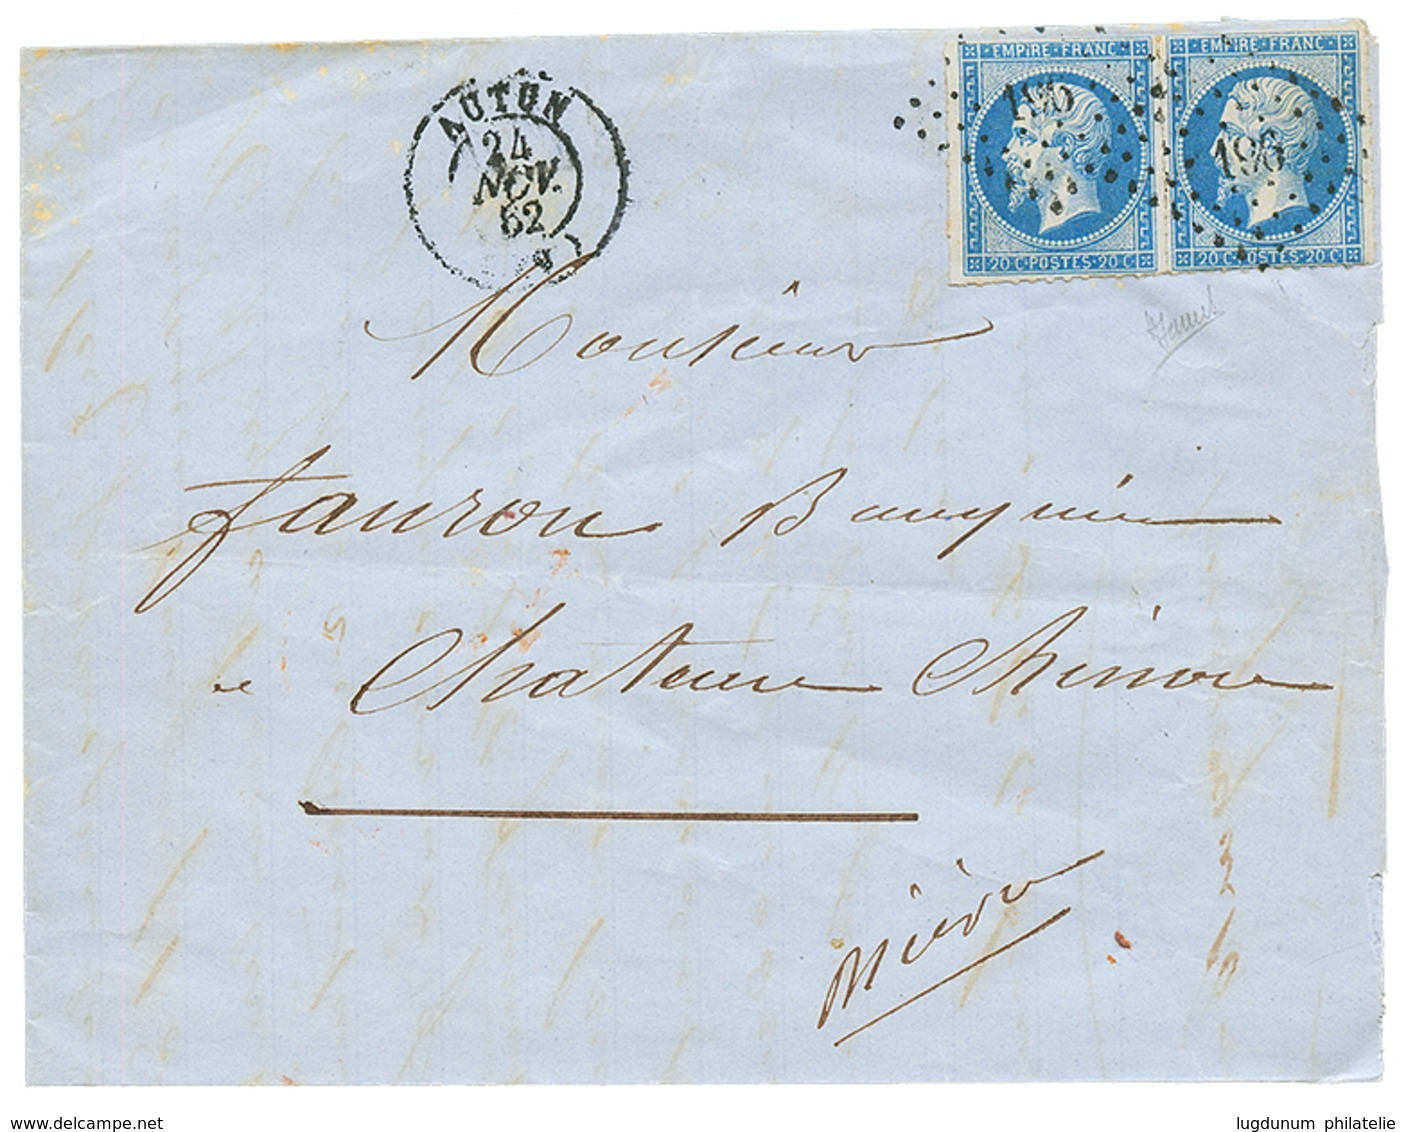 EMPIRE FRANC EMPIRE FRANC
196 196
20 C POSTES 20 C 20 C POSTES 20 C
AUTUN
24
NOV.
62
Monsieur
fauron Banquier
a Chateau Chinon
Nièvre
www.delcampe.net
lugdunum philatelie